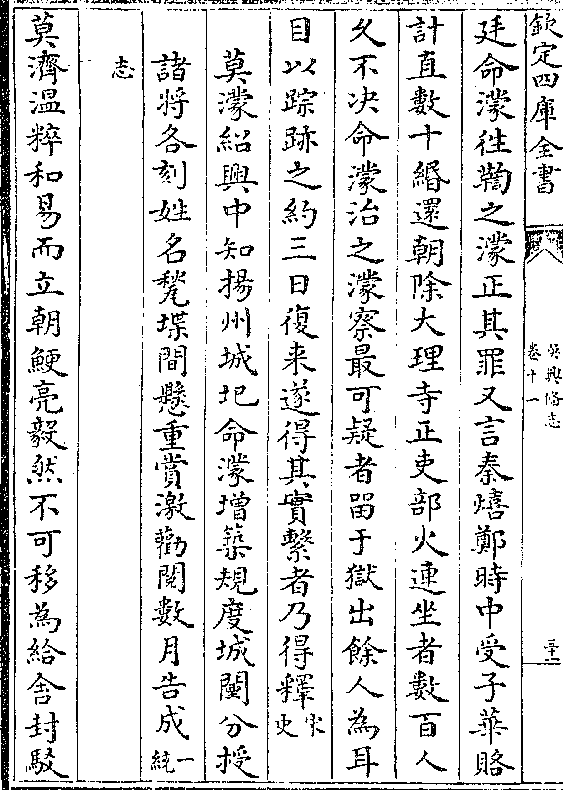 欽定四庫全書
吳興備志
卷十一
三十一
廷命濛徃鞫之濛正其罪又言秦熺鄭時中受子華賂
計直數十緡還朝除大理寺正吏部火連坐者數百人
久不决命濛治之濛察最可疑者留于獄出餘人為耳
目以踪跡之約三日復来遂得其實繫者乃得釋宋史
莫濛紹興中知揚州城圯命濛増築規度城闉分授
諸將各刻姓名甃堞間懸重賞激勸閱數月告成一統
志
莫濟温粹和易而立朝鯁亮毅然不可移為給舍封駁